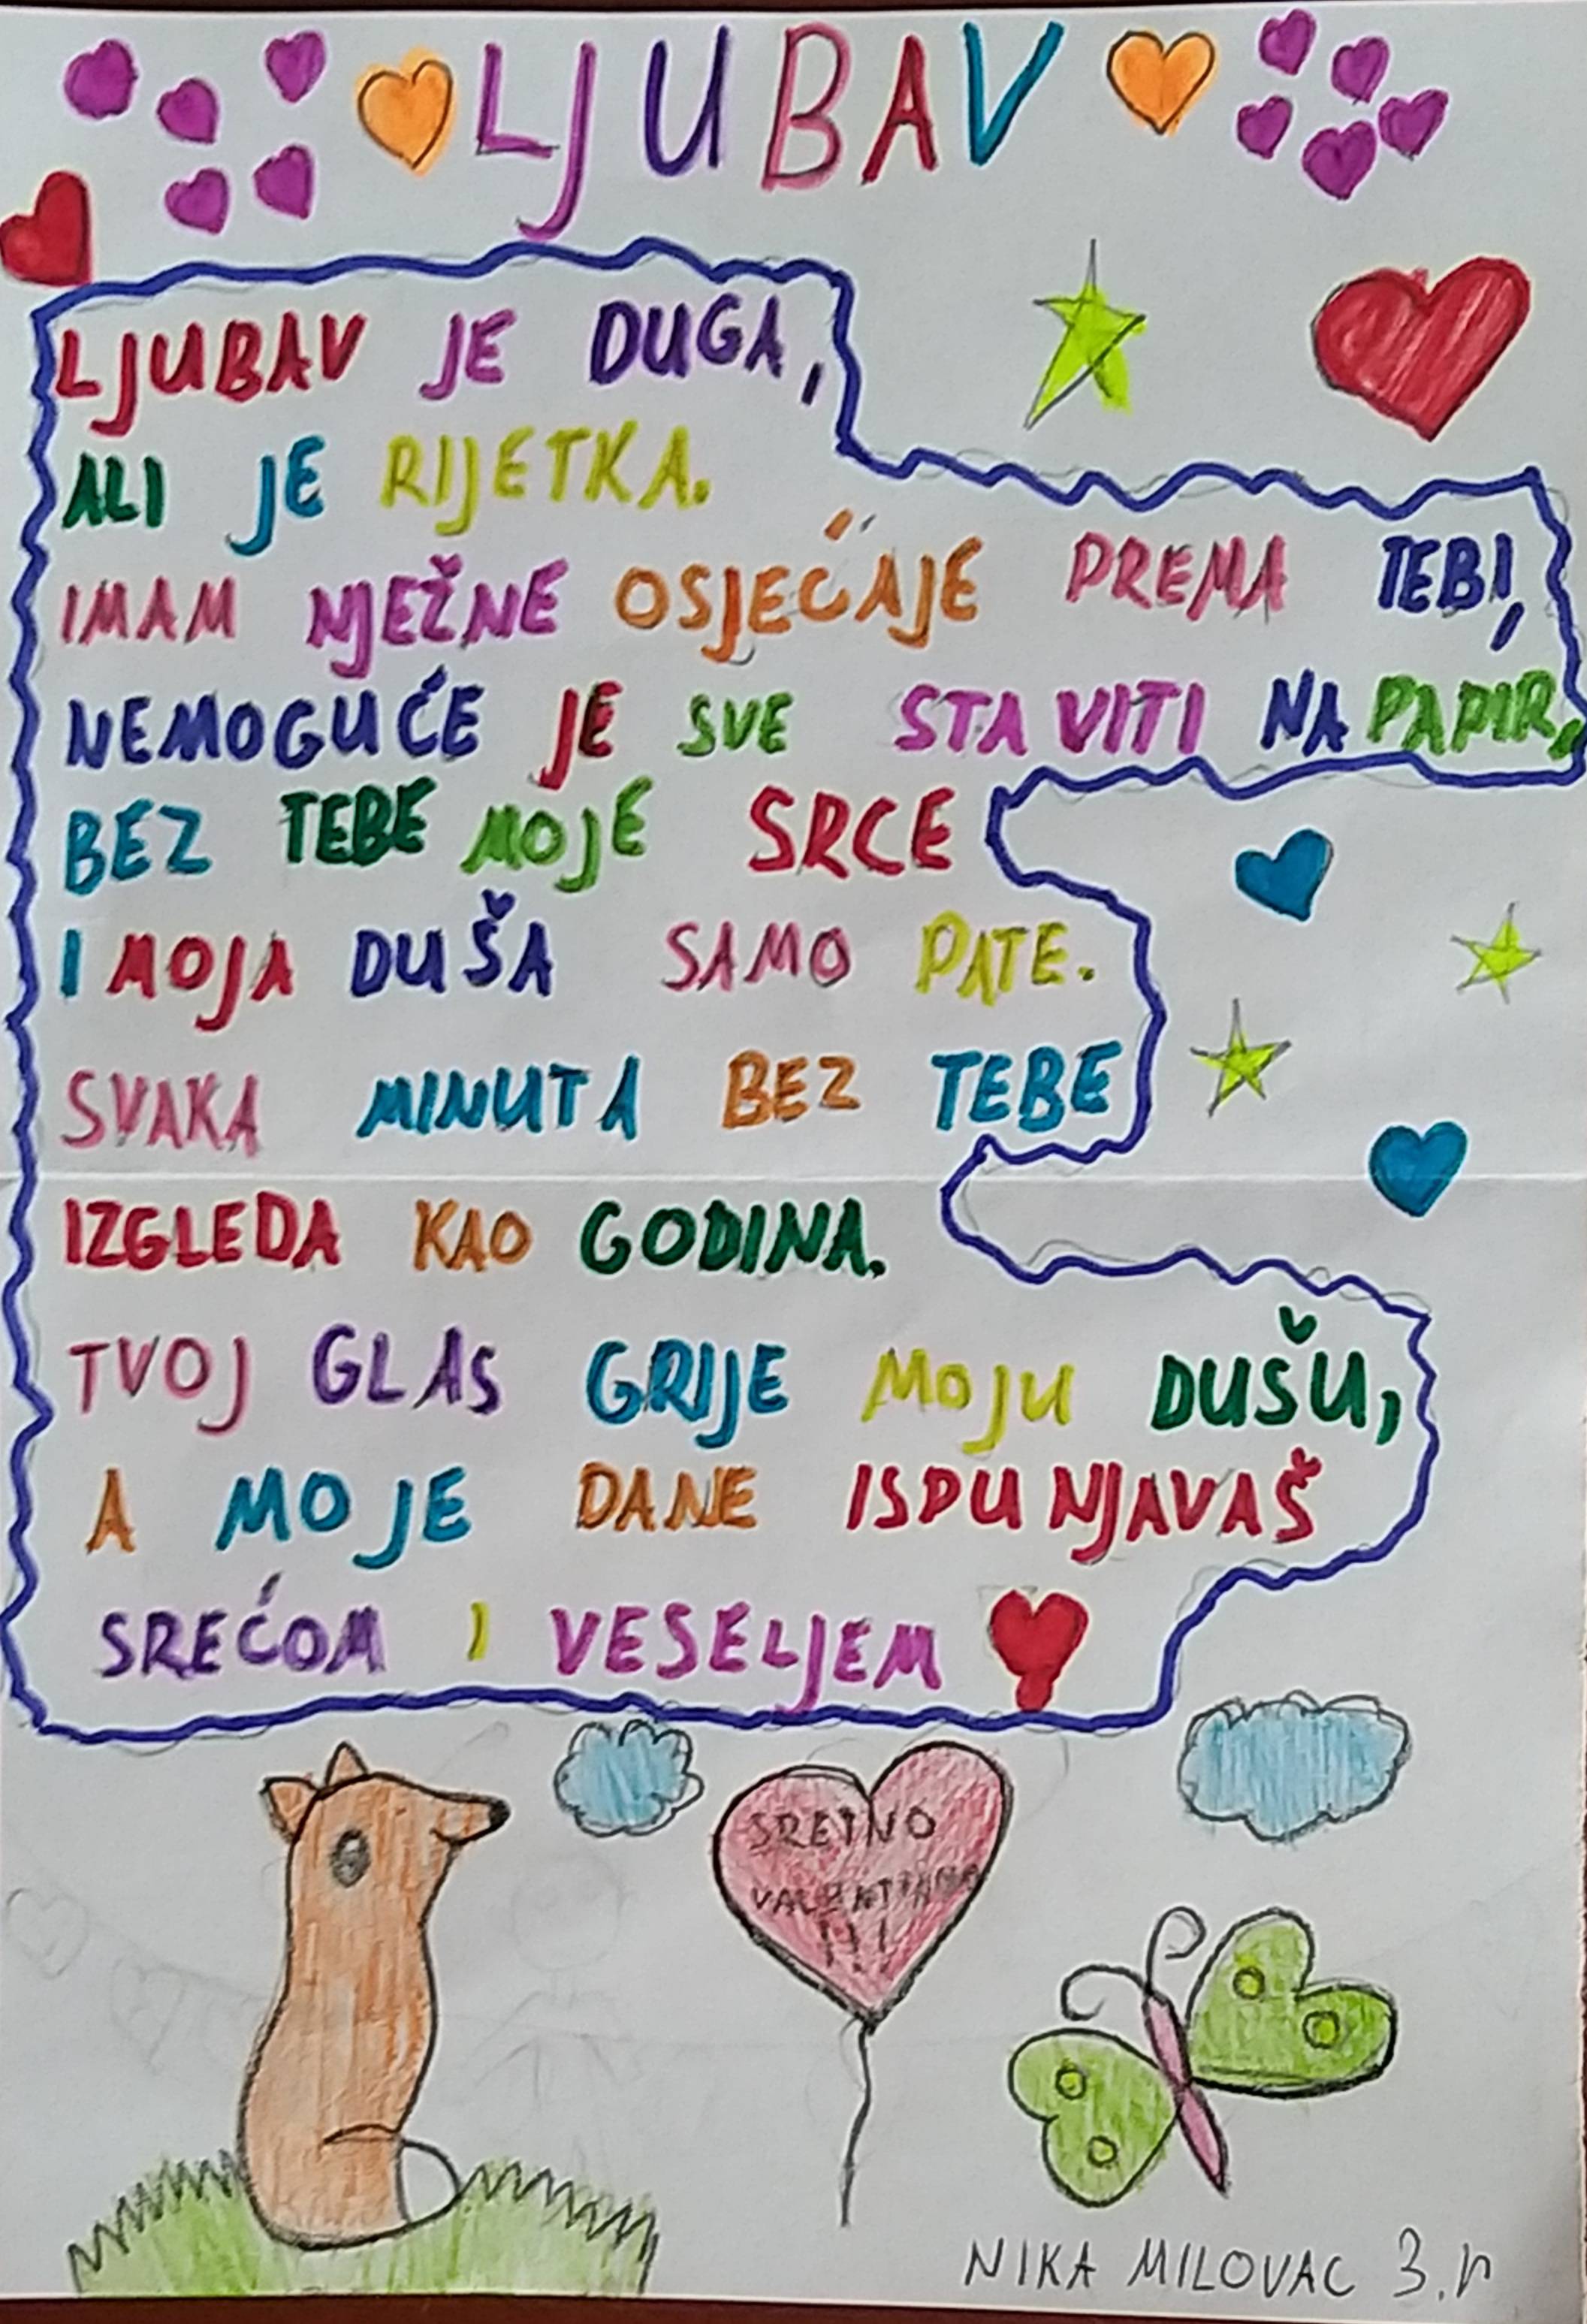 LJUBAV
LJUBAV JE DUGA,
ALI JE RIJETKA.
IMAM NJEŽNE OSJEĆAJE PREMA TEBI,
NEMOGUĆE JE SVE STAVITI NA PAPIR,
BEZ TEBE MOJE SRCE
I MOJA DUŠA SAMO PATE.
SVAKA MINUTA BEZ TEBE
IZGLEDA KAO GODINA.
TVOJ GLAS GRIJE MOJU DUŠU,
A MOJE DANE ISPUNJAVAŠ
SREĆOM I VESELJEM
SRETNO
VALENTINOVO
!!!
NIKA MILOVAC 3.r